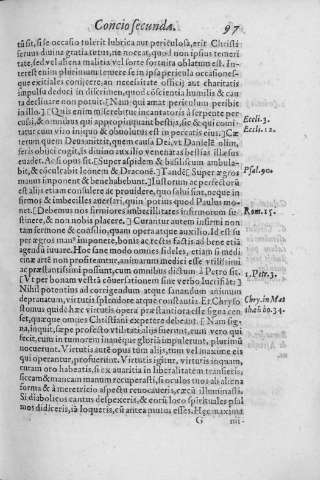 Concio secunda. 97
tū sit, si se occasio tulerit lubrica aut periculosa, erit Christi
seruus diuina gratia tetus, ne noceat, quod non ipsius temeri
tate, sed vel aliena malitia vel sorte fortuita oblatum est. In-
terest enim plurimum temere se in ipsa pericula occasiones-
que exitiales conijcere, an necessitate officij aut charitatis
impulsu deduci in discrimen, quod cōscientia humilis & cau
ta declinare non potuit. [Nam qui amat periculum peribit
in illo.] [Quis enim miserebitur incantatoris à serpente per
cussi, & omnibus qui appropinquant bestijs, sic & qui comi-
tatur cum viro iniquo & obuolutus est in peccatis eius.] Cæ
terum quem Deus mittit, quem causa Dei, vt Danielē olim,
feris obijci cogit, is diuino auxilio venenatas bestias illæsus
euadet. Ac si opus sit. [Super aspidem & basiliscum ambula-
bit, & cōculcabit leonem & Draconē.] Tandē [Super ægros
manus imponent & benehabebunt.] Iustorum ac perfectorū
est alijs etiam consulere ac prouidere, quo salui sint, neque in-
firmos & imbecilles auersari, quin potius quod Paulus mo-
net. [Debemus nos firmiores imbecillitates infirmorum su-
stinere, & non nobis placere.] Curantur autem infirmi non
tam sermone & consilio, quam opera atque auxilio. Id est su
per ægros man⁹ imponere, bonis ac rectis factis ad bene etiā
agendū iuuare. Hoc sane modo omnes fideles, etiam si medi
cinæ artē non profiteantur, animarum medici esse vtilissimi
ac præstantissimi possunt, cum omnibus dictum à Petro sit.
[Vt per bonam vestrā cōuersationem sine verbo lucrifiāt.]
Nihil potentius ad corrigendum atque sanandum animum
deprauatum, virtutis splendore atque constantia. Et Chryso
stomus quide hæc virtutis opera præstantiora esse signa cen
set, quæque omnes Christiani expetere debeant. [Nam sig-
na, inquit, sæpe profecto vtilitati alijs fuerunt, eum vero qui
fecit, cum in tumorem inanēque gloriā impulerunt, plurimū
nocuerunt. Virtutis autē opus tūm alijs, tum vel maxime eis
qui operantur, profuerunt. Virtutis igitur, virtutis inquam,
curam oro habeatis, si ex auaritia in liberalitatem transieris,
siccam & mancam manum recuperasti, si oculos tuos ab aliena
forma & à meretricio aspectu reuocaueris, cæcū illuminasti.
Si diabolicos cantus despexeris, & eorū loco spirituales psal
mos didiceris, iā loqueris, cū antea mutus esses. Hæc maxima
G iiij-
Eccli.3.
Eccli.12.
Psal.90.
Rom.15.
1.Petr.3.
Chry.in Mat
thæū ho.34.